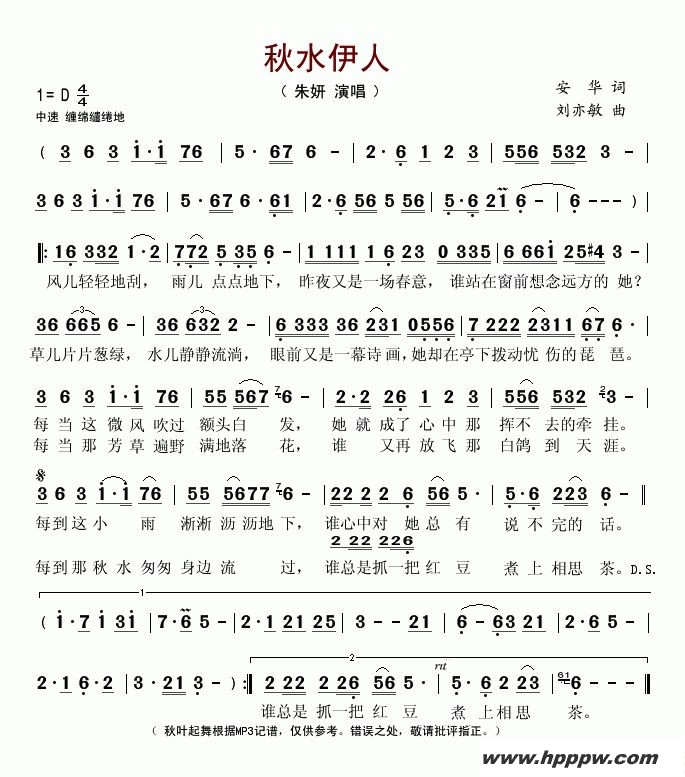 秋水伊人
（ 朱妍 演唱 ）
1= D 4/4
安 华 词
中速 缠绵缱绻地
刘亦敏 曲
( 3 6 3 i·i 76 | 5·67 6- | 2·6 1 2 3 | 556 532 3- |
3 6 3 i·i 76 | 5·67 6·61 | 2·6 56 5 56 | 5·6 2i 6- | 6- - - )|
‖: 16 332 1·2 | 772 5 35 6- | 3 111 1 6 23 0 335 | 6 66i 25#4 3- |
风儿轻轻地刮， 雨儿 点点地下， 昨夜又是一场春意， 谁站在窗前想念远方的 她？
36 665 6- | 36 632 2- | 6 333 36 231 0556 | 7 222 2311 67 6 |
草儿片片葱绿， 水儿静静流淌， 眼前又是一幕诗画，她却在亭下拨动忧 伤的琵 琶。
3 6 3 i·i 76 | 55 567 6- | 2·2 26 1 2 3 | 556 532 3- |
每 当 这 微 风 吹过 额头白 发， 她 就 成了心中那 挥不 去的牵 挂。
每 当 那 芳 草 遍野 满地落 花， 谁 又再放飞那 白鸽 到 天 涯。
3 6 3 i·i 76 | 55 5677 6- | 22 22 2 6 56 | 5·6 223 6- |
每到这小 雨 淅淅 沥沥地 下， 谁心中对 她总 有 说 不 完的 话。
2 22 226
每到那秋 水 匆匆 身边 流 过， 谁总是抓一把红 豆 煮 上 相思 茶。D.S.
1
( i·7 i 3i | 7·6 5- | 2·3 21 2 5 | 6-63 21 |
2·1 6 2- | 3·21 3- ):‖ 2 22 226 56 | 5·6 2 23 | 6- - - ‖
2
rit
谁总是 抓一把 红 豆 煮 上相思 茶。
（ 秋叶起舞根据MP3记谱，仅供参考。错误之处，敬请批评指正。）
www.hpppw.com